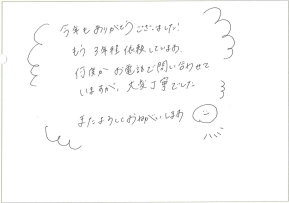 今年もありがとうございました!
もう3年程依頼しています。
何度か お電話で問い合わせて
いますが、大変丁寧でした
またよろしくおねがいします